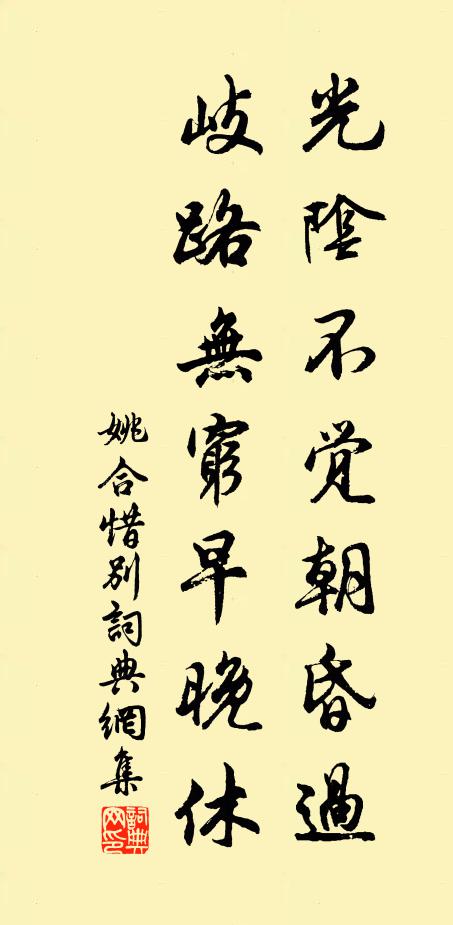 光陰不觉朝昏過
岐路無窮早晚休
姚合惜别詞典網集
詞典网印